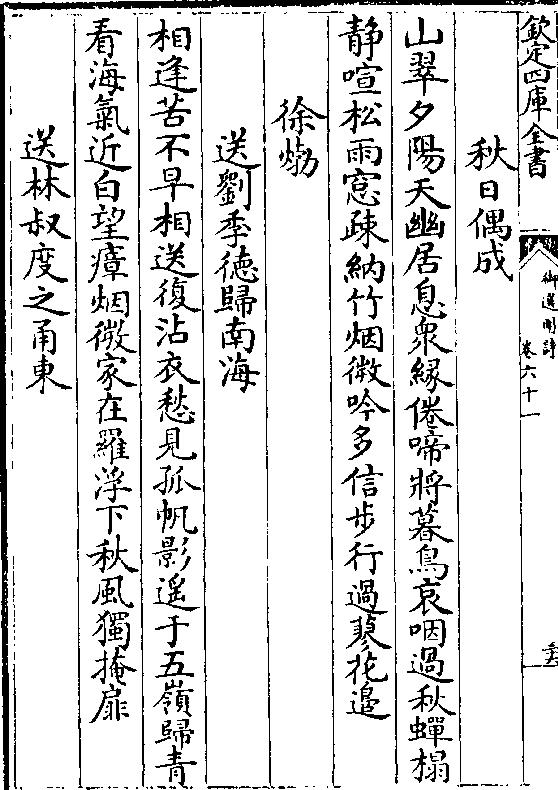 欽定四庫全書
御選明詩
卷六十一
秋日偶成
山翠夕陽天幽居息衆縁倦啼將暮鳥哀咽過秋蟬榻
静喧松雨窓疎納竹烟微吟多信步行過蓼花邉
徐𤊹
送劉季德歸南海
相逢苦不早相送復沾衣愁見孤帆影遥于五嶺歸青
看海氣近白望瘴烟微家在羅浮下秋風獨掩扉
送林叔度之甬東